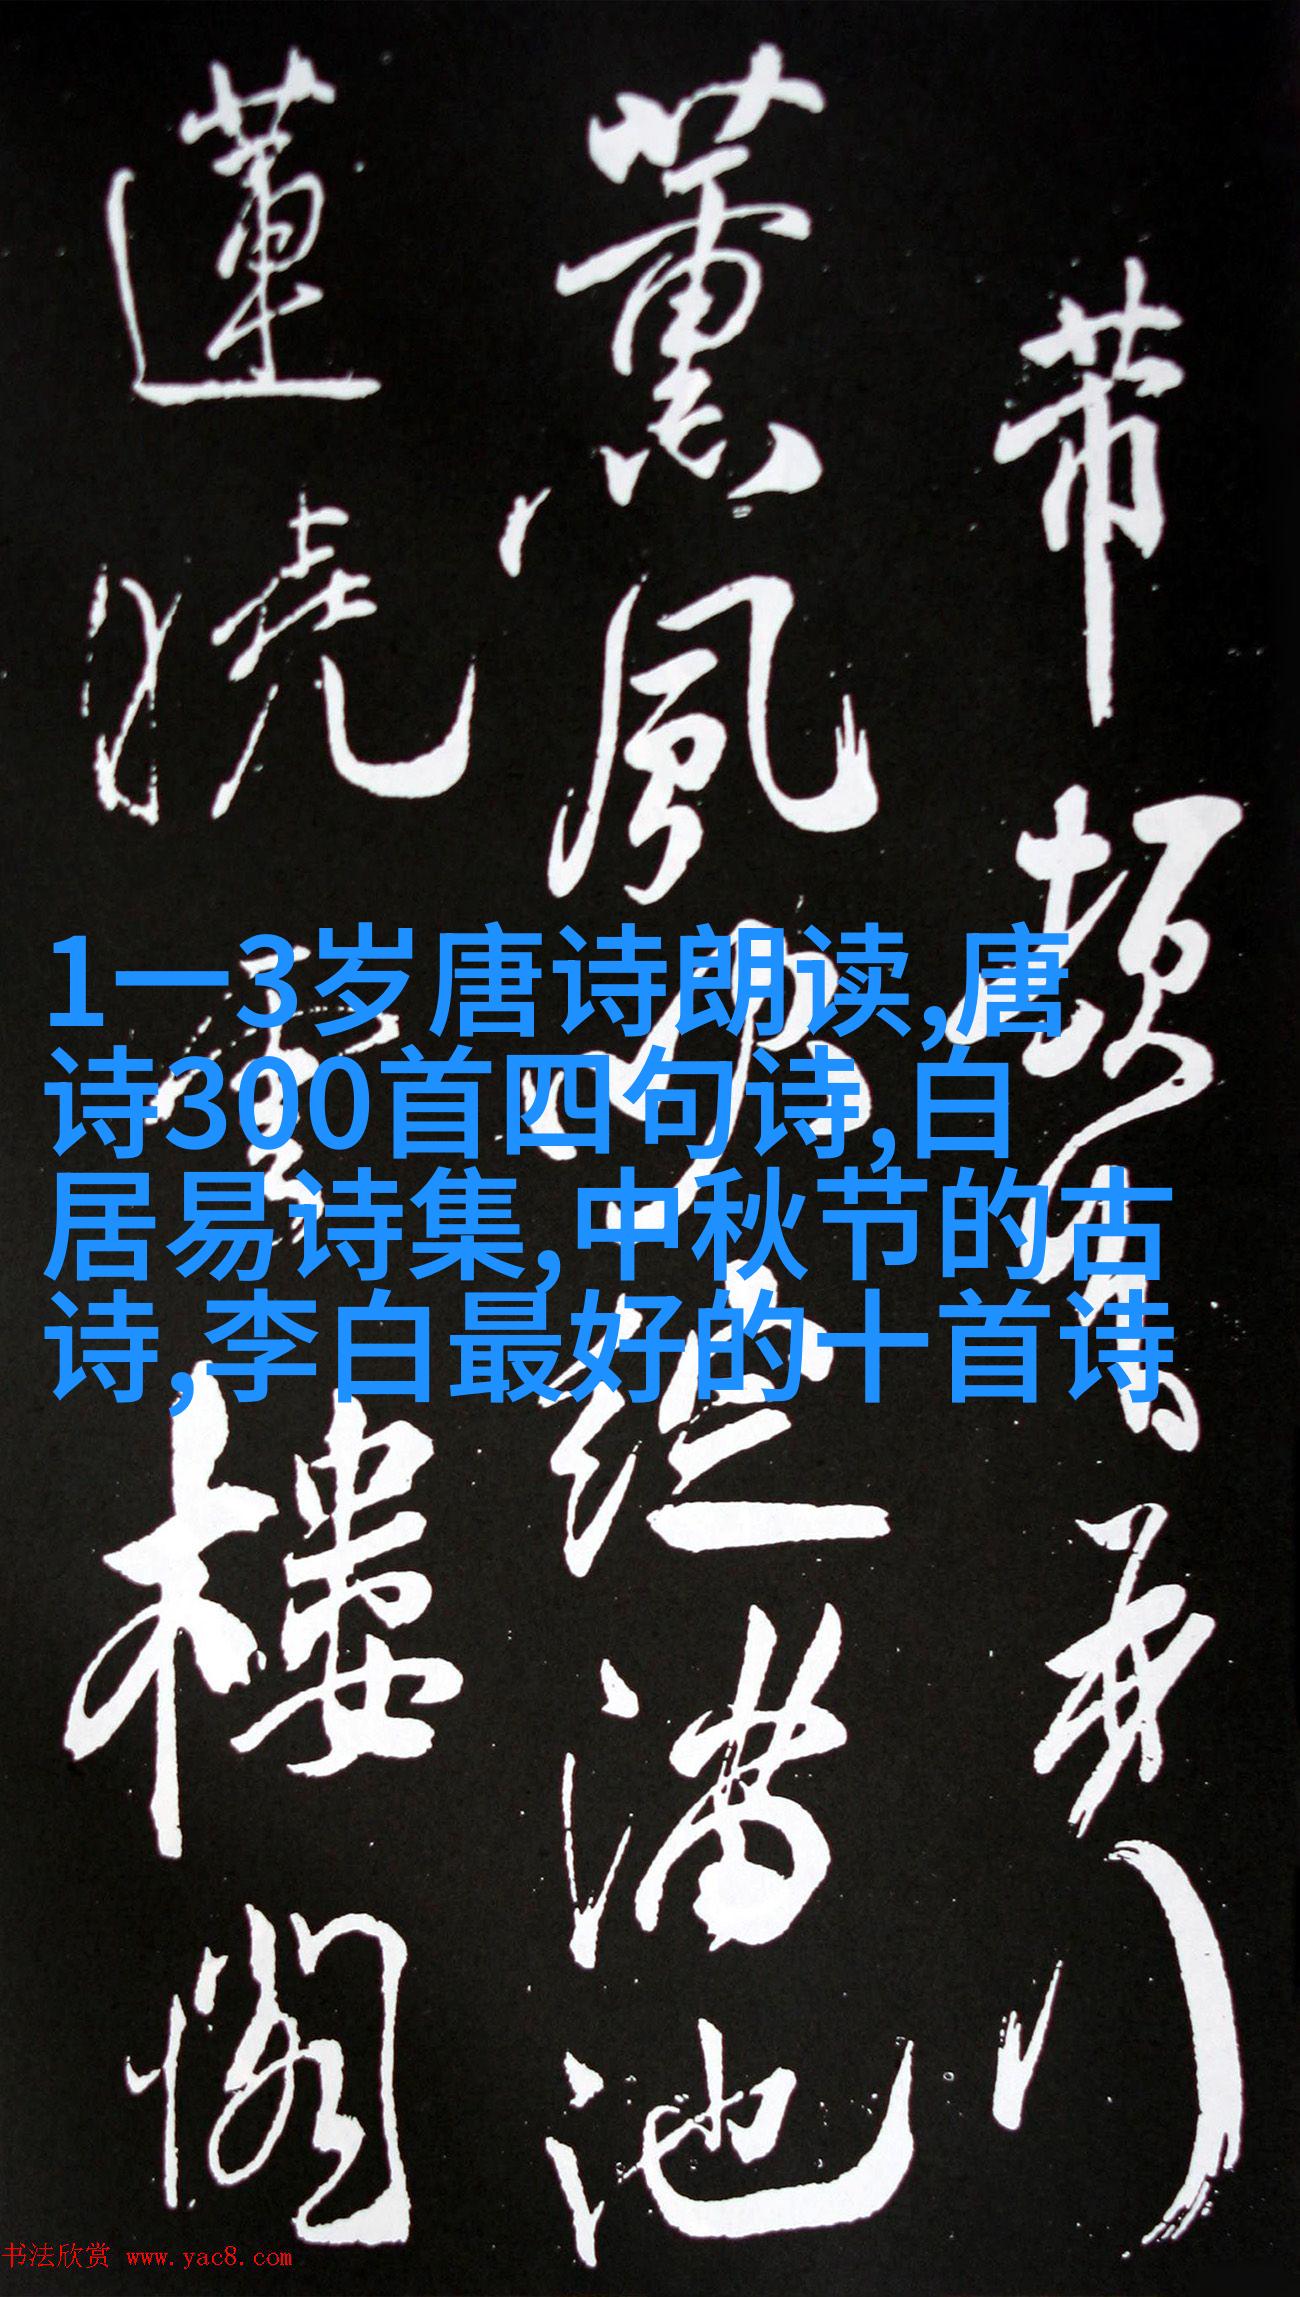 带頻看露行
薰風吹綻滿池
蓮繞雲樓閣
1一3岁唐诗朗读,唐
诗300首四句诗,白
居易诗集,中秋节的古
诗,李白最好的十首诗
书法欣赏 www.yac8.com